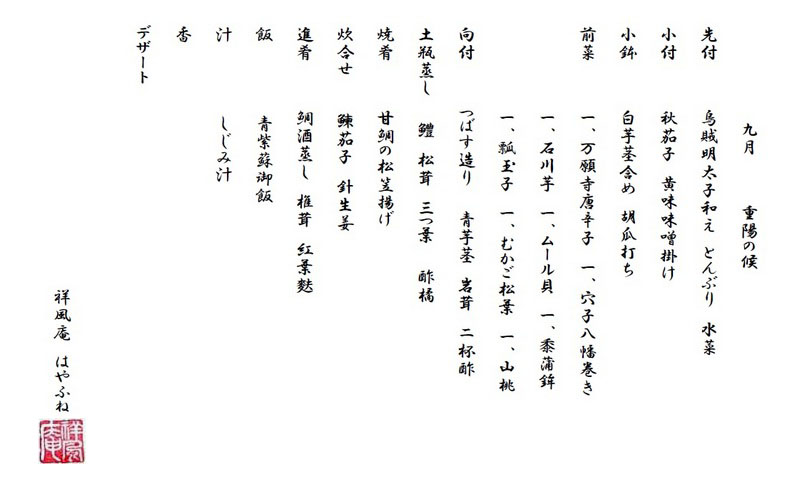 九月 重陽の候
先付 烏賊明太子和え とんぶり 水菜
小付 秋茄子 黄味味噌掛け
小鉢 白芋茎含め 胡瓜打ち
前菜 一、万願寺唐辛子 一、穴子八幡巻き
一、石川芋 一、ムール貝 一、黍蒲鉾
一、瓢玉子 一、むかご松葉 一、山桃
向付 つばす造り 青芋茎 岩茸 二杯酢
土瓶蒸し 鱧 松茸 三つ葉 酢橘
焼肴 甘鯛の松笠揚げ
炊合せ 鰊茄子 針生姜
進肴 鯛酒蒸し 椎茸 紅葉麩
飯 青紫蘇御飯
汁 しじみ汁
香
デザート
祥風庵 はやふね
祥風庵